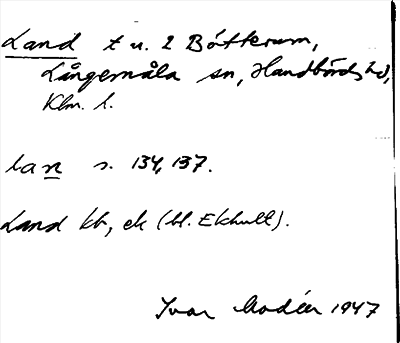 Land t u. 2 Bötterum,
Långemåla sn, Handbörds hd,
Klm. l.
lan s. 134, 137.
Land kb, ek (bl. Ekhult).
Ivar Modéer 1947